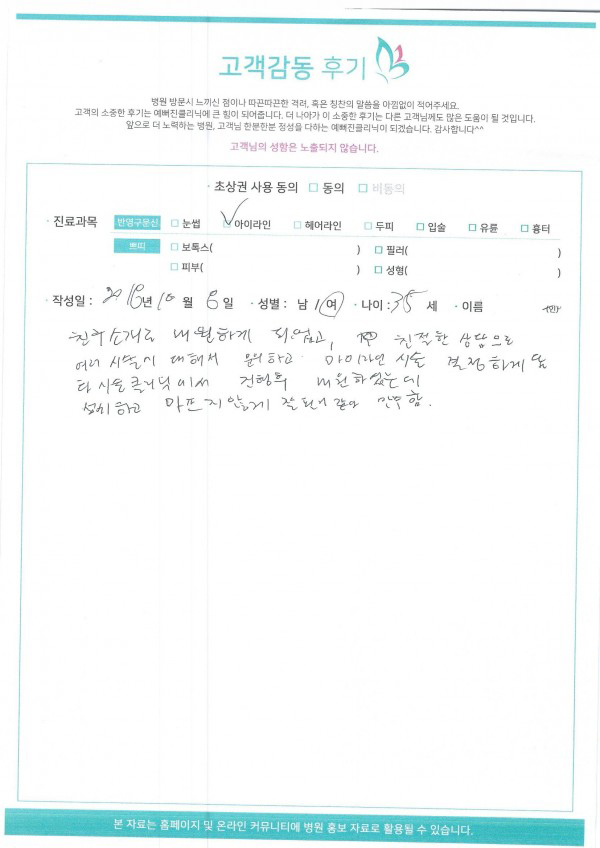 고객감동 후기
병원 방문시 느끼신 점이나 따끈따끈한 격려, 혹은 칭찬의 말씀을 아낌없이 적어주세요.
고객의 소중한 후기는 예뻐진클리닉에 큰 힘이 되어줍니다. 더 나아가 이 소중한 후기는 다른 고객님께도 많은 도움이 될 것입니다.
앞으로 더 노력하는 병원, 고객님 한분한분 정성을 다하는 예뻐진클리닉이 되겠습니다. 감사합니다^^
고객님의 성함은 노출되지 않습니다.
· 초상권 사용 동의 □ 동의 □ 비동의
· 진료과목 반영구문신 □ 눈썹 □ 아이라인 □ 헤어라인 □ 두피 □ 입술 □ 유륜 □ 흉터
쁘띠 □ 보톡스( ) □ 필러( )
□ 피부( ) □ 성형( )
· 작성일 : 2016년 10월 6일 · 성별 : 남 / 여 · 나이 : 35 세 · 이름
친구소개로 내원하게 되었고, 친절한 상담으로
여러 시술에 대해서 문의하고 아이라인 시술 결정하게 됨
타 시술 클리닉에서 진행후 내원하였는데
섬세하고 아프지않게 잘 된거 같아 만족함.
본 자료는 홈페이지 및 온라인 커뮤니티에 병원 홍보 자료로 활용될 수 있습니다.